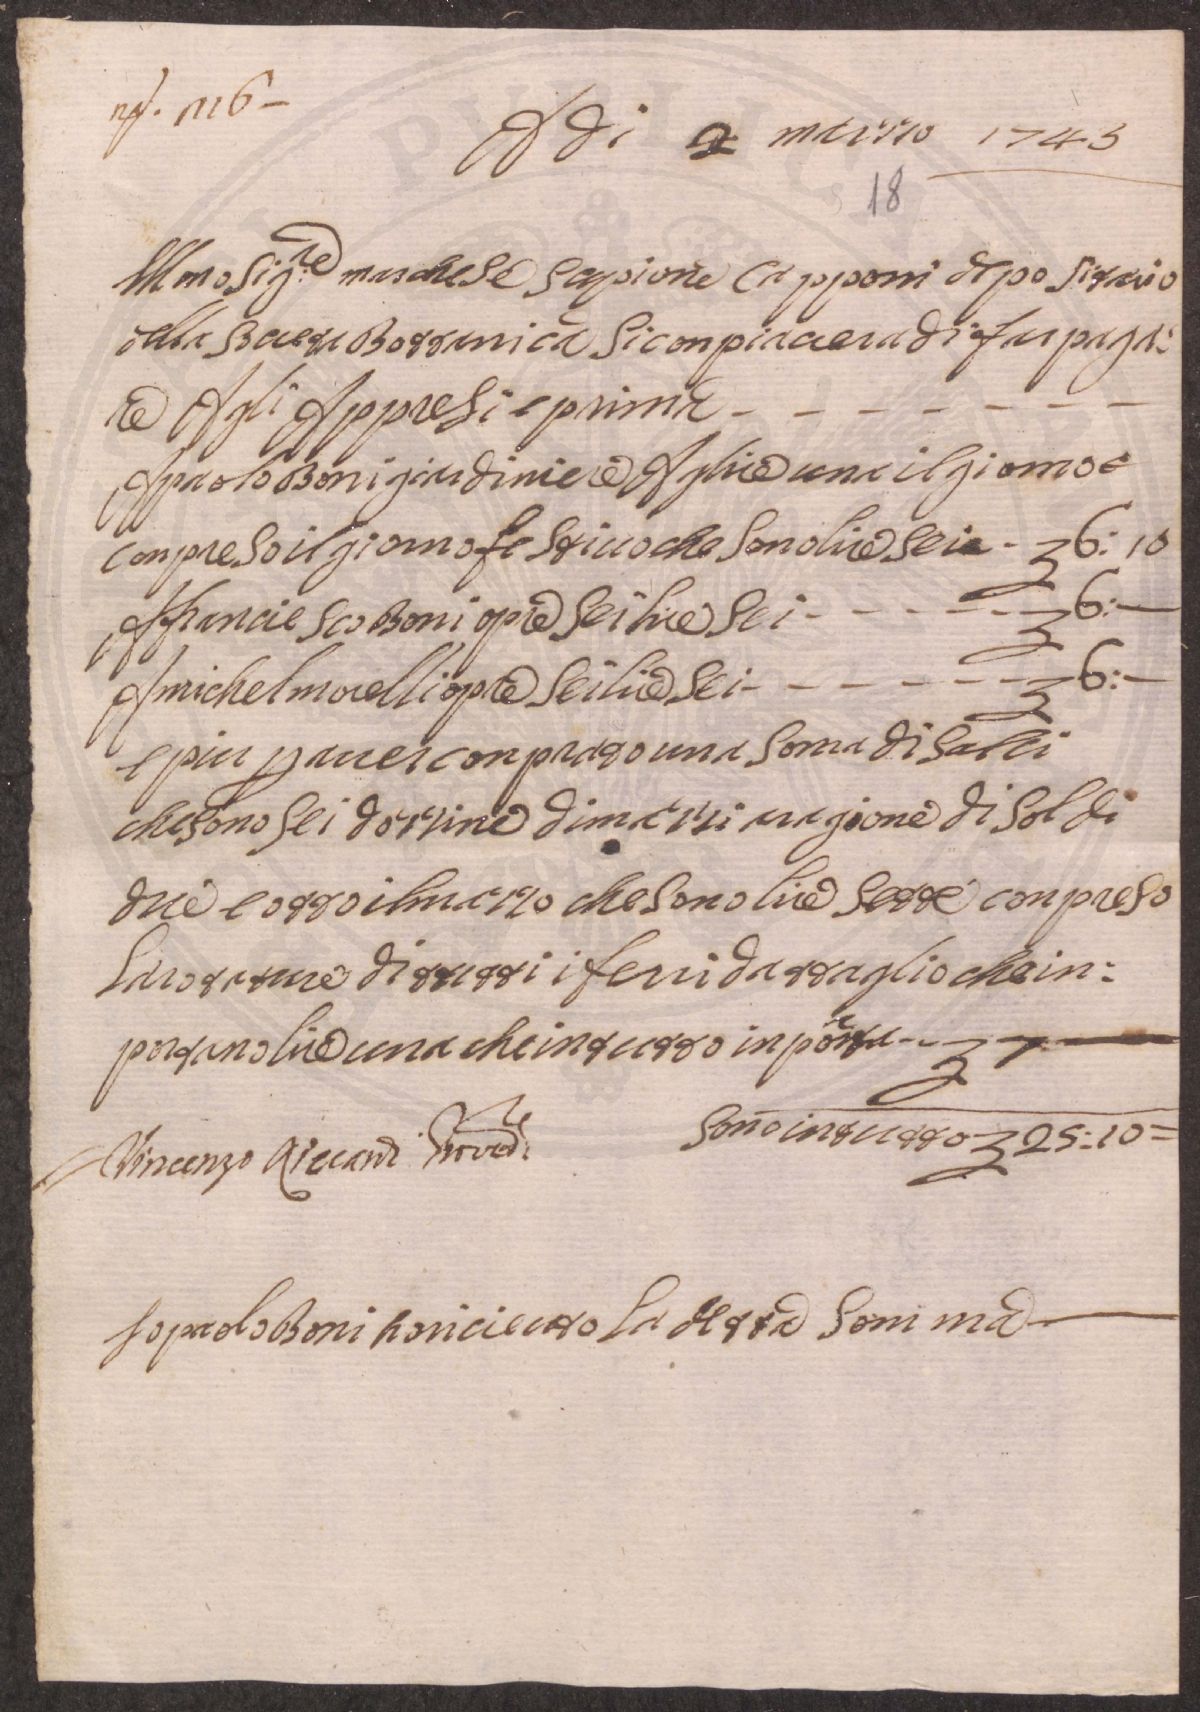 n.° 116 -
A di 2 marzo 1743
18
Ill mo Sig.re marchese Scipione Capponi depositario
della Sacieta Bottanica Si conpiacera di far paga:
re Agli Appresi e prima - - - - - - - -
A paolo Boni giardiniere A glire una il giorno e
conpreso il giorno festiuo che sono lire seie - 6: 10
A franciesco Boni opre sei lire sei - - - - - 6: —
A michel morelli opre sei lire sei - - - - - - 6: —
e piu p auer conprato una soma di salci
che sono sei dozzine di mazzi a ragione di soldi
due e otto il mazzo che sono lire sette conpreso
larotature di tutti i ferri da ttaglio che in:
portano lire una che in tutto inporta - - 7 —
Sono in tutto 25: 10 =
Vincenzo Riccardi Provedre
Io paolo Boni ho riceuto la detta somma —